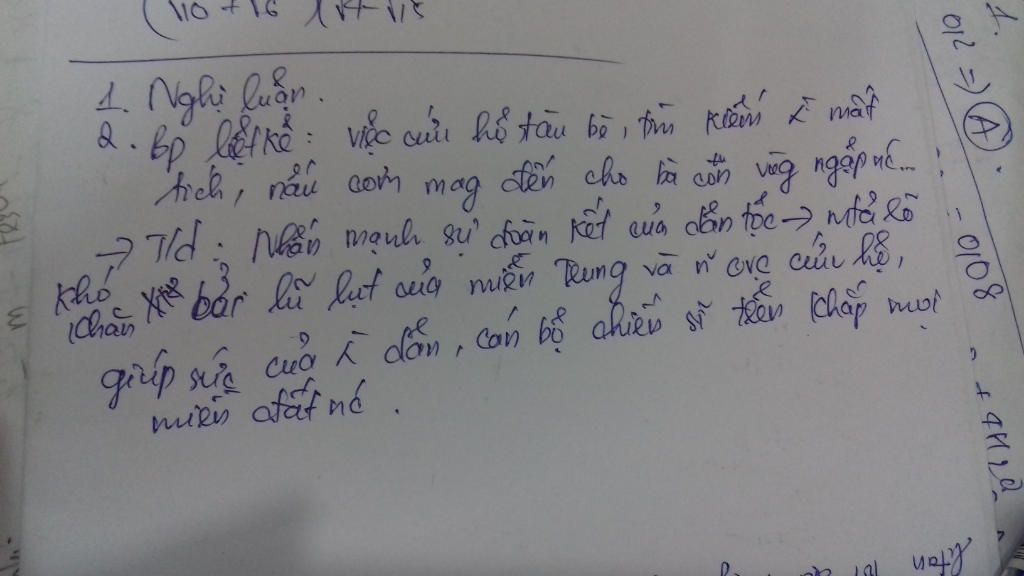 (√10 + √6)(√4 - √15
1. Nghị luận.
2. Bp liệt kê: việc cứu hộ tàu bè, tìm kiếm mất
tích, nấu cơm mag đến cho bà con vùg ngập nc...
→ T/d: Nhấn mạnh sự đoàn kết của dân tộc →
khó
khăn bởi lũ lụt của miền Trung và cứu hộ,
giúp sức của dân, cán bộ chiến sĩ trên khắp mọi
miền đất nc.
1.
012 => A
- 0108